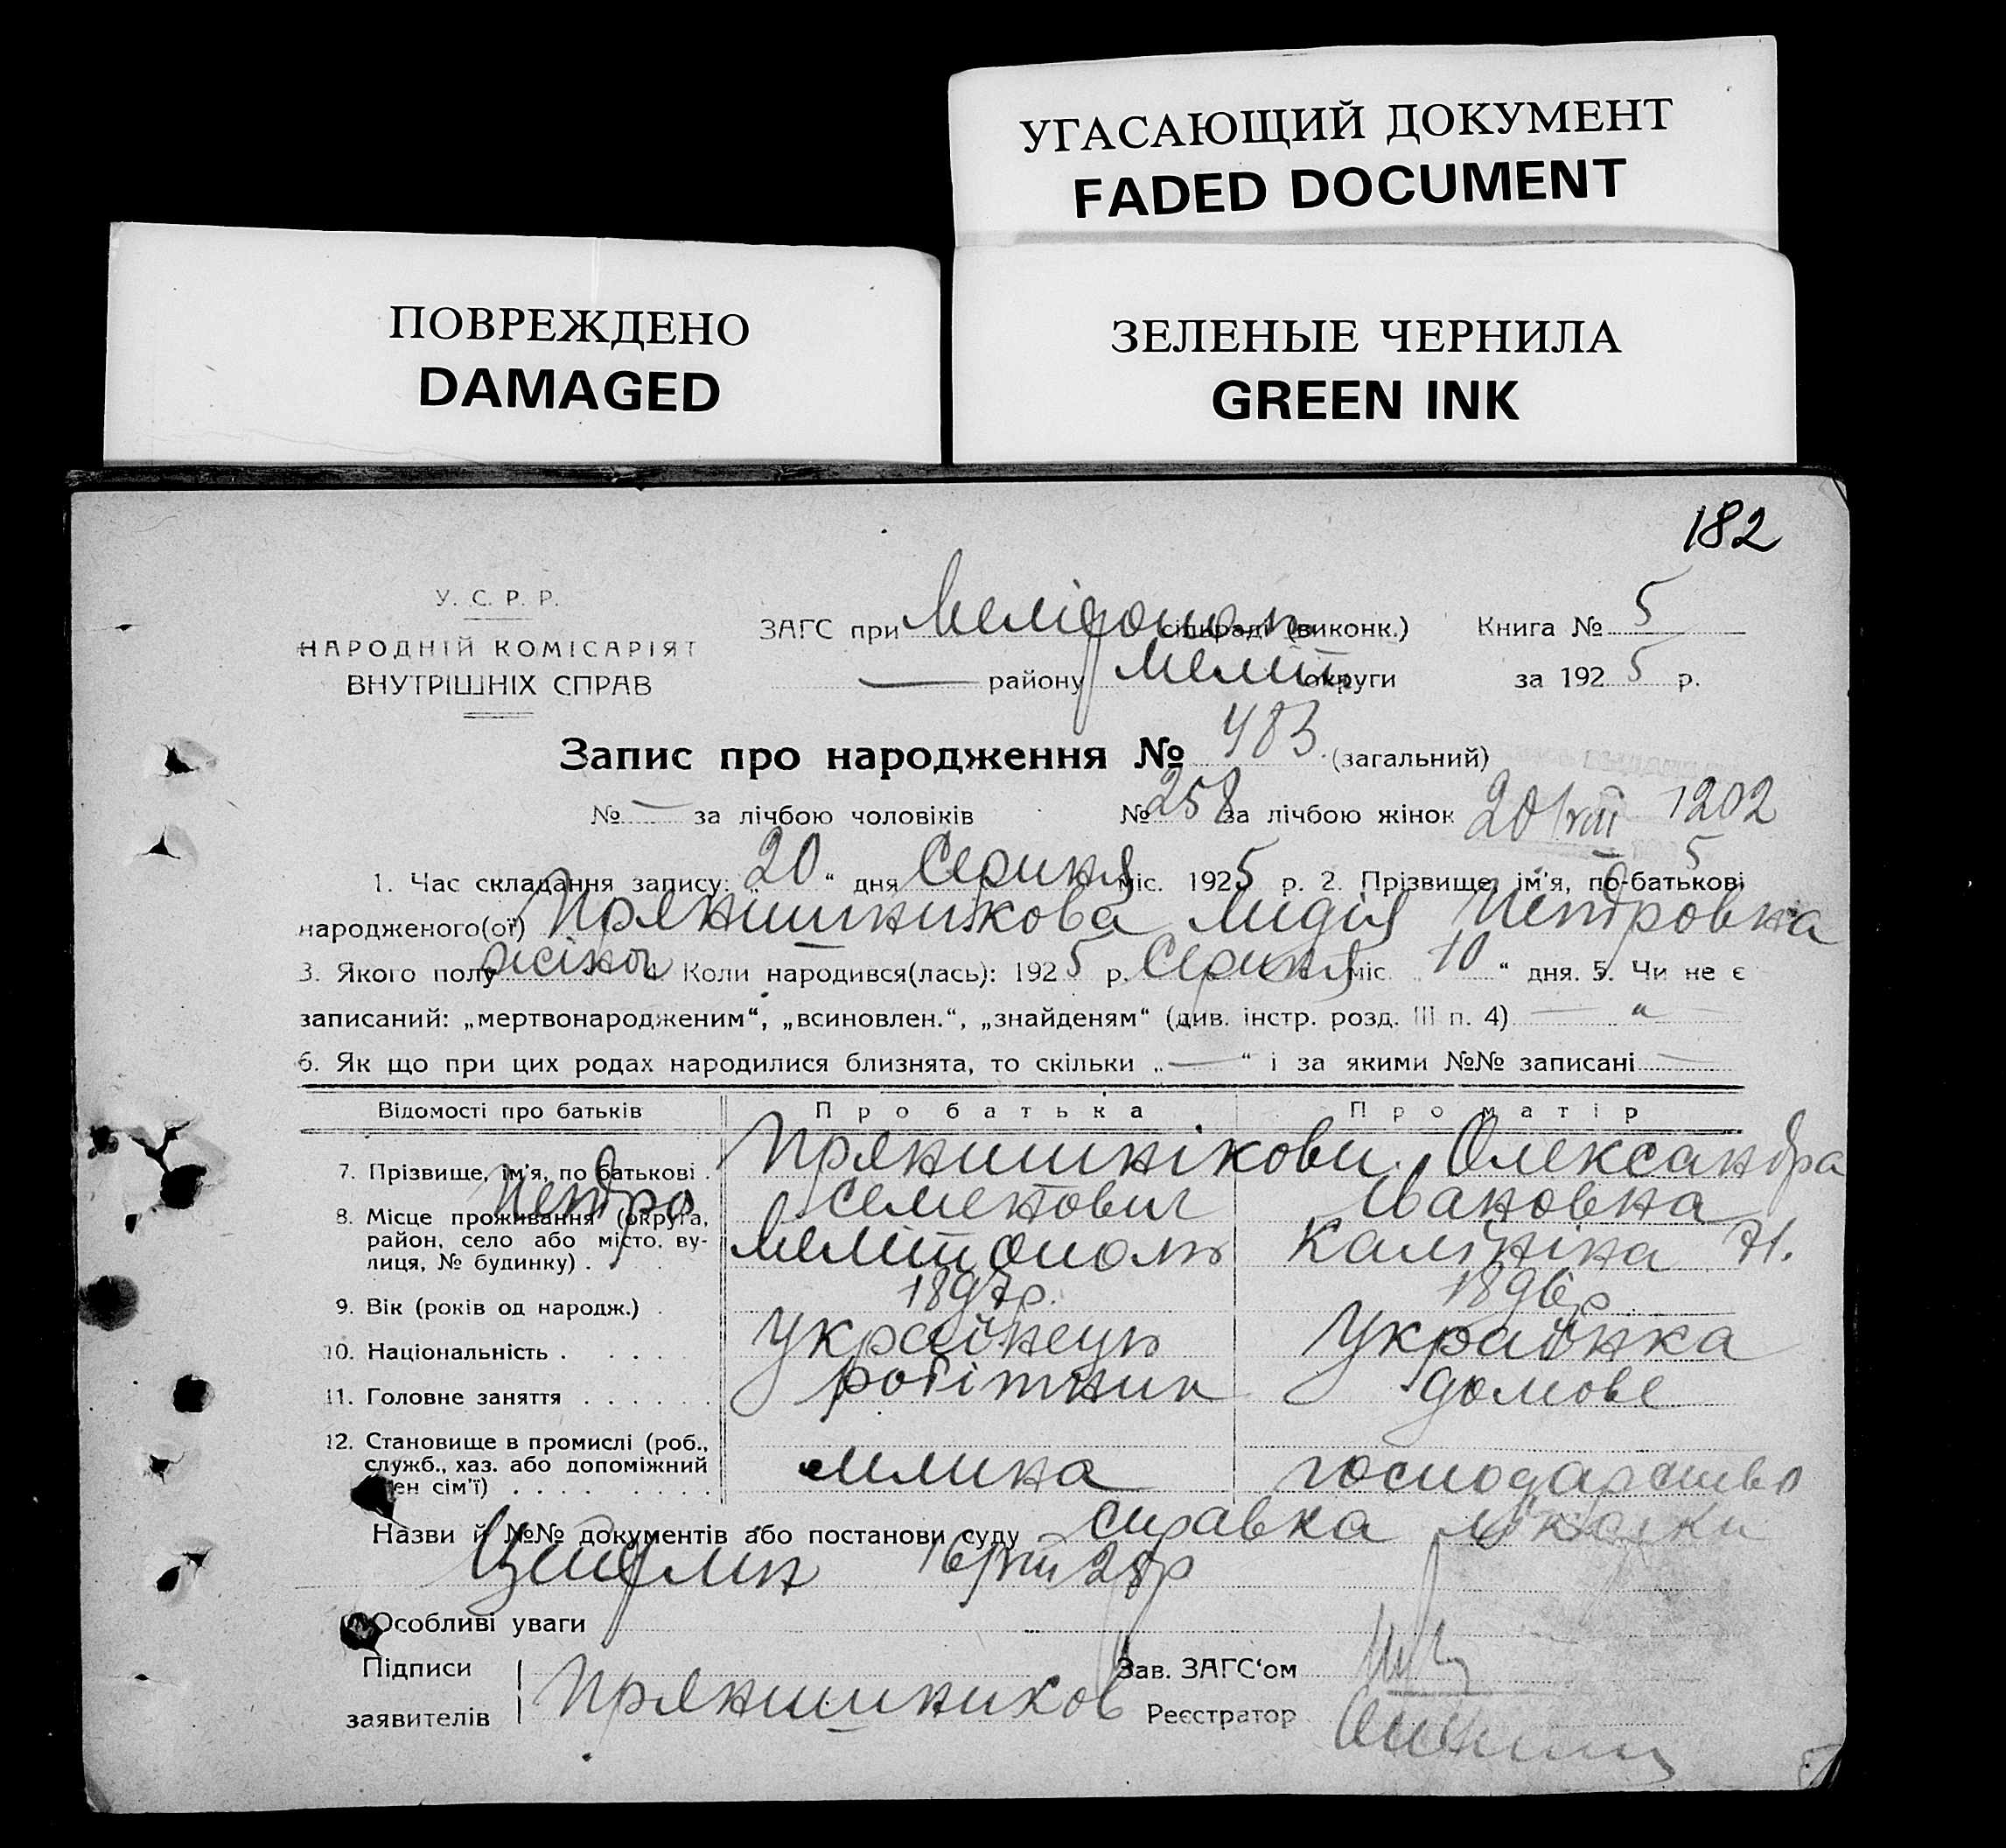 УГАСАЮЩИЙ ДОКУМЕНТ
FADED DOCUMENT
ПОВРЕЖДЕНО
DAMAGED
ЗЕЛЕНЫЕ ЧЕРНИЛА
GREEN INK
182
У. С. Р. Р.
НАРОДНІЙ КОМІСАРІЯТ
ВНУТРІШНІХ СПРАВ
ЗАГС при Мелітополь сільраді (виконк.) Книга № 5
— району Меліт округи за 1925 р.
Запис про народження № 483 (загальний)
№ — за лічбою чоловіків № 258 за лічбою жінок 20/VIII 1202
5
1. Час складання запису: „20“ дня Серпня міс. 1925 р. 2. Прізвище, ім'я, по-батькові
народженого(ої) Прянишникова Лидія Петровна
3. Якого полу жіноч 4. Коли народився(лась): 1925 р. Серпня міс. 10 “ дня. 5. Чи не є
записаний: „мертвонародженим“, „всиновлен.“, „знайденям“ (див. інстр. розд. III п. 4) — „ —
6. Як що при цих родах народилися близнята, то скільки „—“ і за якими №№ записані —
Відомості про батьків Про батька Про матір
7. Прізвище, ім'я, по батькові . Прянишнікови Олександра
Петро Семенович Івановна
8. Місце проживання (округа, район, село або місто, вулиця, № будинку) . Мелітополь Калініна 71.
9. Вік (років од народж.) . 1897р. 1896р
10. Національність . . . . Українець Українка
11. Головне заняття . . . . . . робітник домове
12. Становище в промислі (роб.,
служб., хаз. або допоміжний
ен сім'ї) . . . . . . . . . млина господарство
Назви й №№ документів або постанови суду справка
16/VIII 25р
Особливі уваги
Підписи
заявителів Прянишников
Зав. ЗАГС‘ом
Реєстратор